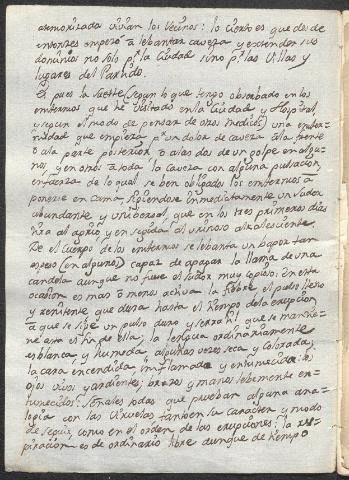 atemorizada vivian los Vecinos: lo cierto es que desde
entonces empezó a lebantar caveza y extender sus
dominios no solo pr. la Ciudad sino pr. las Villas y
lugares del Partido.
Es pues la Suette, segun lo que tengo obserbado en los
enfermos que he visitado en la Ciudad y Hospital,
y segun el modo de pensar de otros medicos, una enfer-
medad que empieza pr. un dolor de caveza a la frente
o a la parte posterior o a las dos de un golpe en algu-
nos, y en otros a toda la caveza con alguna pulsacion,
en fuerza de lo qual se ben obligados los enfermos a
ponerse en cama siguiendose inmediatamente un sudor
abundante y universal, que en los tres primeros dias
tira al agrio, y en seguida al urinoso alkalescente.
De el cuerpo de los enfermos se lebanta un bapor tan
espeso (en algunos) capaz de apagar la llama de una
candela aunque no fuese el sudor muy copioso. En esta
ocasion es mas o menos activa la fiebre el pulso lleno
y renitente que dura hasta el tiempo de la erupcion
a que se sigue un pulso duro y serratil que se mantie-
ne asta el fin de ella; la lengua ordinariamente
es blanca y humeda, algunas veces seca y colorada,
la cara encendida inflamada y entumecida: los
ojos vivos y ardientes, brazos y manos lebemente en-
tumecidos: señales todas que prueban alguna ana-
logia con las viruelas tanto en su caracter y modo
de seguir, como en el orden de las erupciones: la res-
piracion es de ordinario libre aunque de tiempo